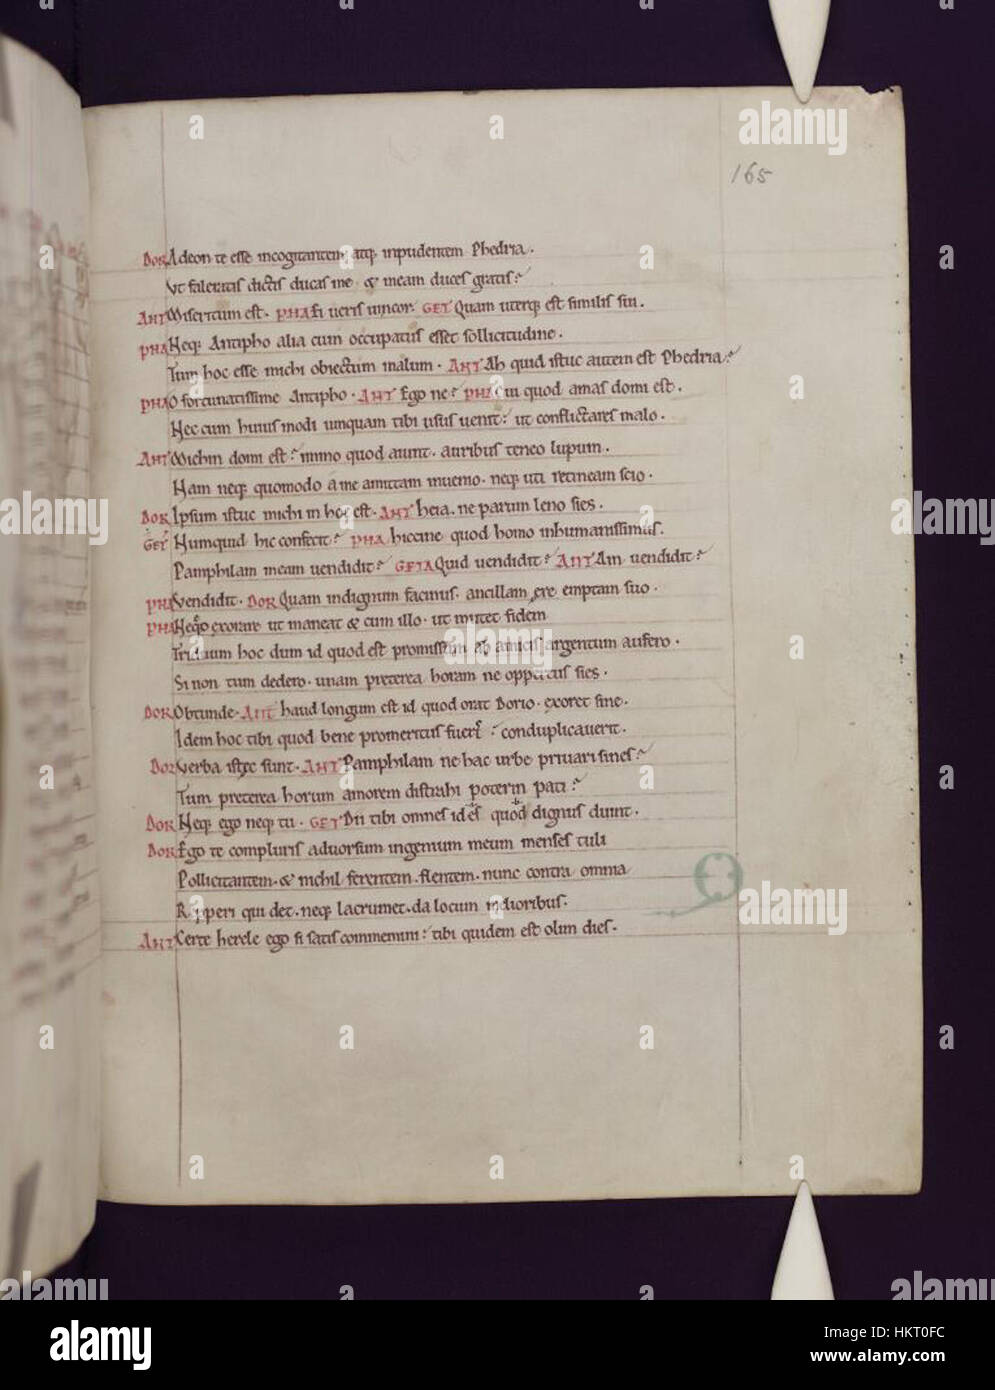 165
DOR Adeon te esse incogitantem atq; inpudentem Phedria.
Vt faleratis dictis ducas me & meam duces gratis?
ANT Misericum est. PHA Ei ueris uincor. GET Quam uterq; est similis sui.
PHA Neq; Antipho alia cum occupatus esset sollicitudine.
Tum hoc esse michi obiectum malum. ANT Ah quid istuc autem est Phedria?
PHA O fortunatissime Antipho. ANT Ego ne? PHA Cui quod amas domi est.
Nec cum huius modi umquam tibi usus uenit? ut conflictares malo.
ANT Michin domi est? immo quod aiunt. auribus teneo lupum.
Nam neq; quomodo a me amittam inuenio. neq; uti retineam scio.
DOR Ipsum istuc michi in hoc est. ANT heia. ne parum leno sies.
GET Numquid hic confecit? PHA hiccine quod homo inhumanissimus.
Pamphilam meam uendidit? GETA Quid uendidit? ANT Ain uendidit?
PHA Vendidit. DOR Quam indignum facinus. ancillam ęre emptam suo.
PHA Neqo exorare ut maneat & cum illo. ut mutet fidem
Triduum hoc dum id quod est promissum ab amicis argentum aufero.
Si non tum dedero. unam preterea horam ne oppertus sies.
DOR Obtunde. ANT haud longum est id quod orat Dorio. exoret sine.
Idem hoc tibi quod bene promeritus fuerit? conduplicauerit.
DOR Verba istec sunt. ANT Pamphilam ne hac urbe priuari sines?
Tum preterea horum amorem distrahi poterin pati?
DOR Neq; ego neq; tu. GET Dii tibi omnes id es quod dignus duint.
DOR Ego te compluris aduorsum ingenium meum menses tuli
Pollicitantem. & nichil ferentem. flentem. nunc contra omnia
Repperi qui det. neq; lacrumet. da locum melioribus.
ANT Certe hercle ego si satis commemini? tibi quidem est olim dies.
alamy
alamy
alamy
alamy
alamy
alamy
alamy
alamy
alamy
alamy
Image ID: HKT0FC
www.alamy.com